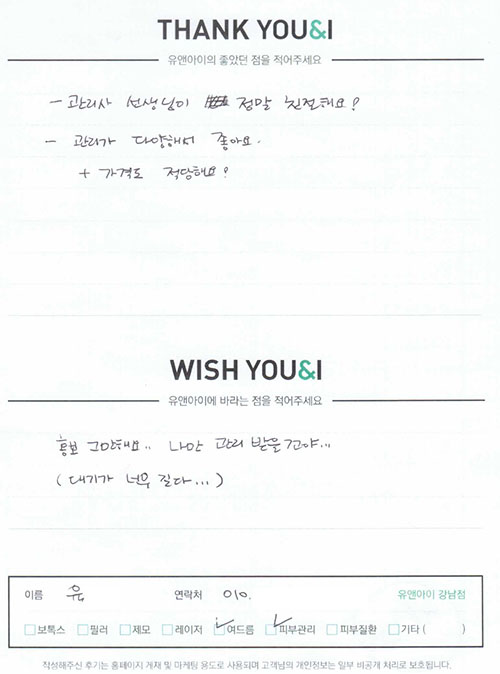 THANK YOU&I
유앤아이의 좋았던 점을 적어주세요
- 관리사 선생님이 정말 친절해요!
- 관리가 다양해서 좋아요.
+ 가격도 적당해요!
WISH YOU&I
유앤아이에 바라는 점을 적어주세요
홍보 그만해요.. 나만 관리 받을꺼야...
(대기가 너무 길다...)
이름 유 연락처 010. 유앤아이 강남점
보톡스 필러 제모 레이저 여드름 피부관리 피부질환 기타 ( )
작성해주신 후기는 홈페이지 게재 및 마케팅 용도로 사용되며 고객님의 개인정보는 일부 비공개 처리로 보호됩니다.